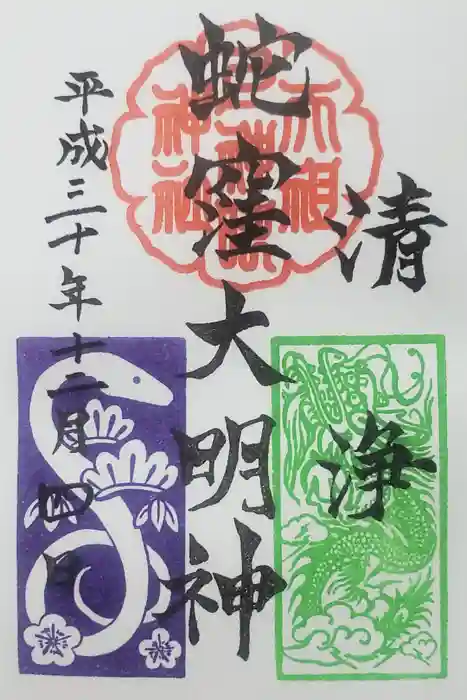 清浄
蛇窪大明神
平成三十年十二月四日